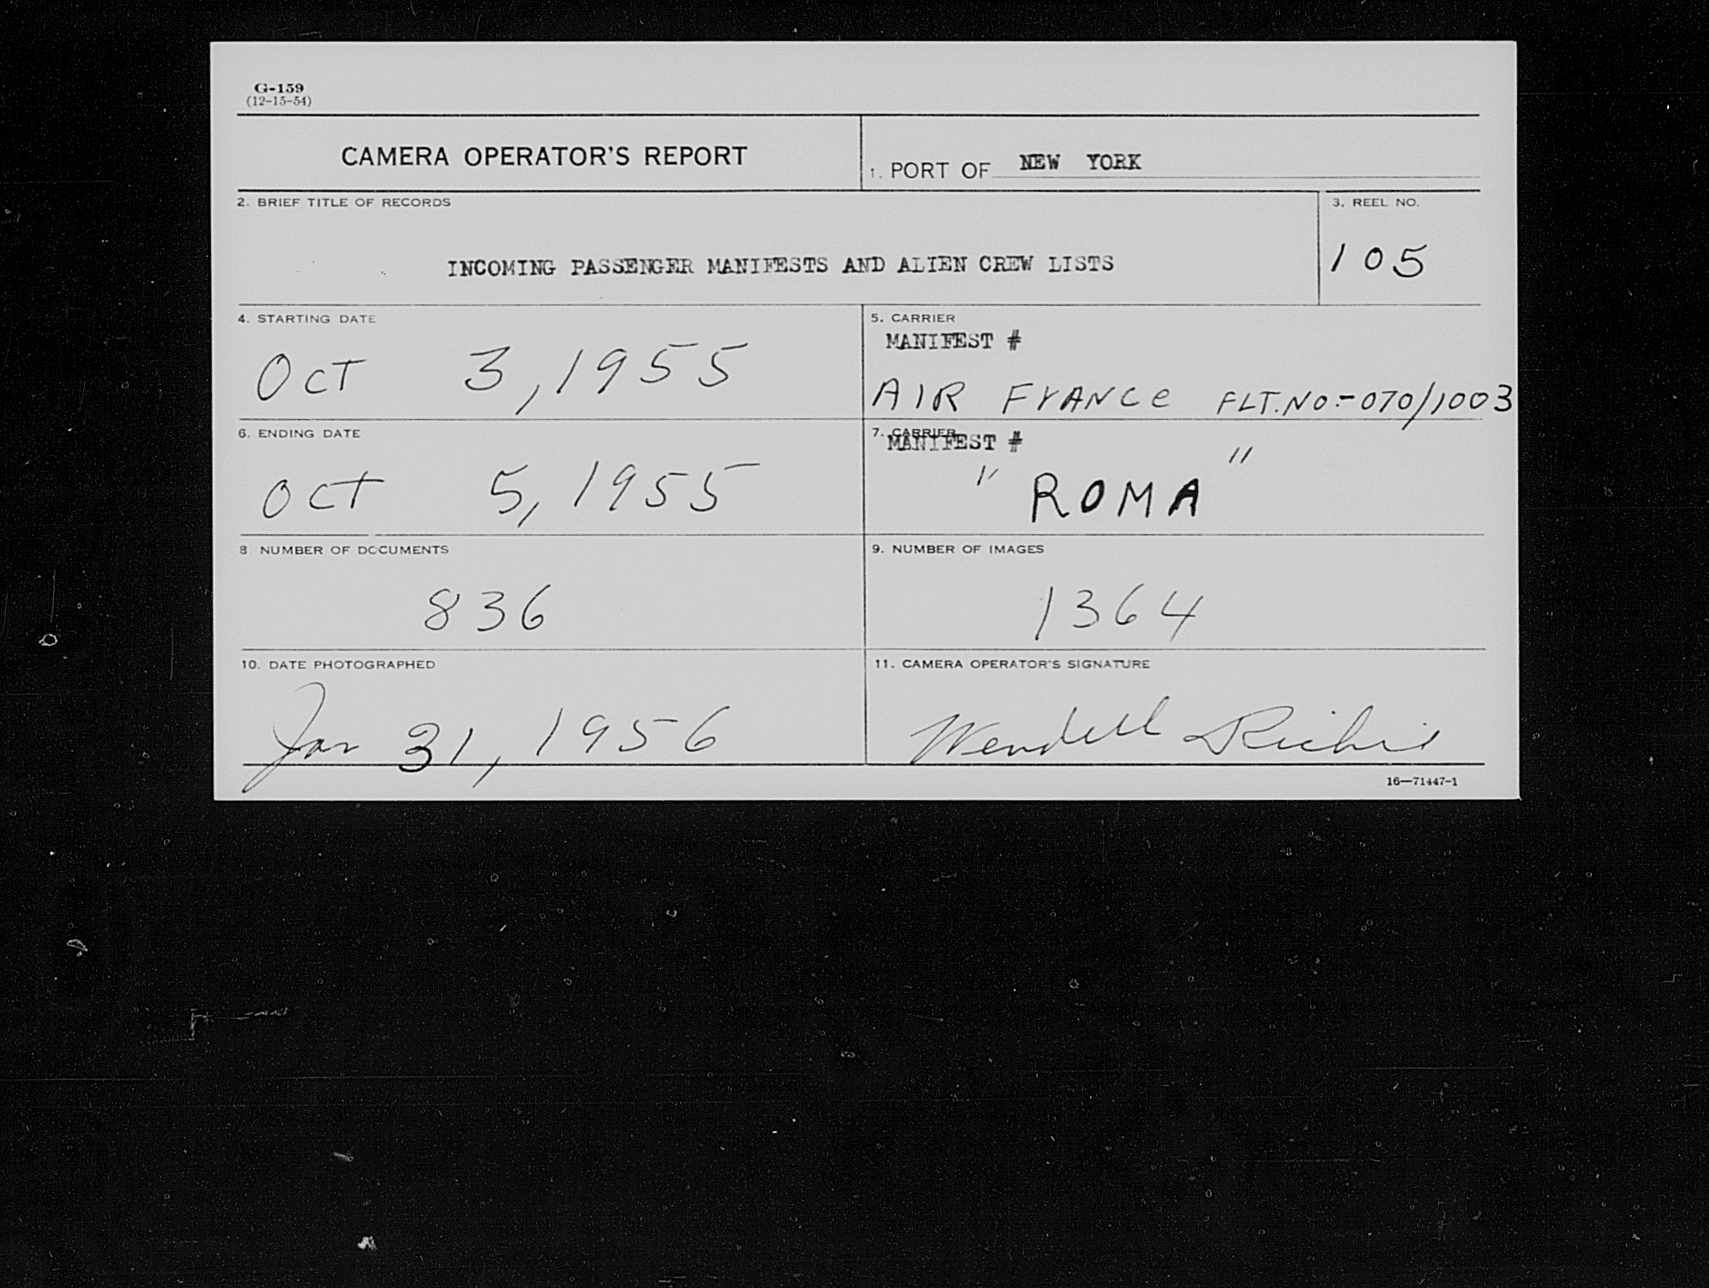 G-159
(12-15-54)
CAMERA OPERATOR'S REPORT
1. PORT OF NEW YORK
2. BRIEF TITLE OF RECORDS
INCOMING PASSENGER MANIFESTS AND ALIEN CREW LISTS
3. REEL NO.
105
4. STARTING DATE
Oct 3, 1955
5. CARRIER
MANIFEST #
AIR FrANCe FLT.NO.-070/1003
6. ENDING DATE
Oct 5, 1955
7. CARRIER
MANIFEST #
"ROMA"
8 NUMBER OF DOCUMENTS
836
9. NUMBER OF IMAGES
1364
10. DATE PHOTOGRAPHED
Jan 31, 1956
11. CAMERA OPERATOR'S SIGNATURE
Wendell Richie
16—71447-1